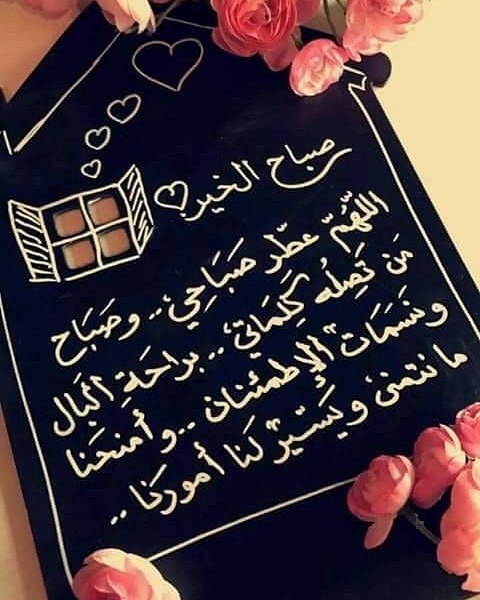 صباح الخير
اللهُمّ عطّر صَبَاحِيْ.. وصَبَاح
مَن تَصِلُه كَلِمَاتيْ.. براحَةِ البَال
ونَسَمَات الإطمئنان.. وأمنحَنا
ما نتمنىْ ويَسّيرْ لَنا أمورَنا..